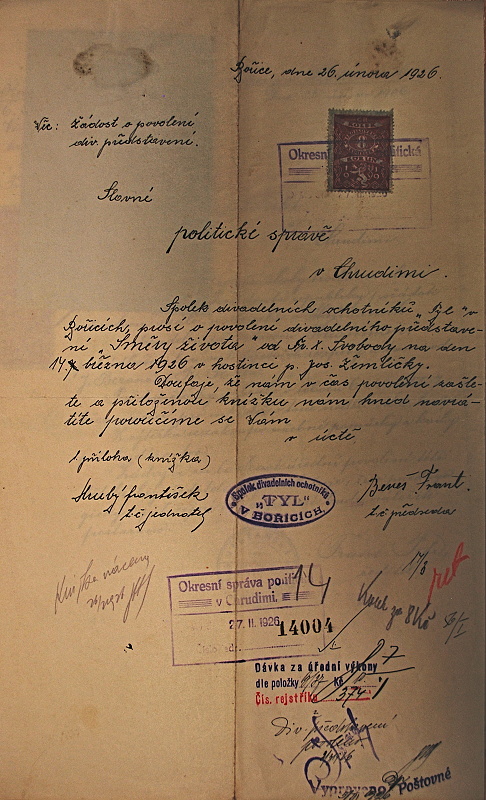 Bořice, dne 26. února 1926.
Věc: Žádost o povolení
div. představení.
Okresní
Slavné
politické správě
v Chrudimi.
Spolek divadelních ochotníků „Tyl" v
Bořicích, prosí o povolení divadelního představe-
ní „Směry života" od Fr. X. Svobody na den
14. března 1926 v hostinci p. Jos. Žemličky.
Doufaje, že nám v čas povolení zašle-
te a přiloženou knížku nám hned navrá-
títe poroučíme se Vám
v úctě
1 příloha (knížka)
Hrubý František
t. č. jednatel
Spolek divadelních ochotníků
„TYL"
V BOŘICÍCH.
Beneš Frant.
t. č. předseda
17/3
Okresní správa politi
v Chrudimi.
27. II. 1926
14004
14
Kolek za 8 Kč
Dávka za úřední výkony
dle položky Kč
Čís. rejstříku 374
Div. představení
Vypraveno Poštovné